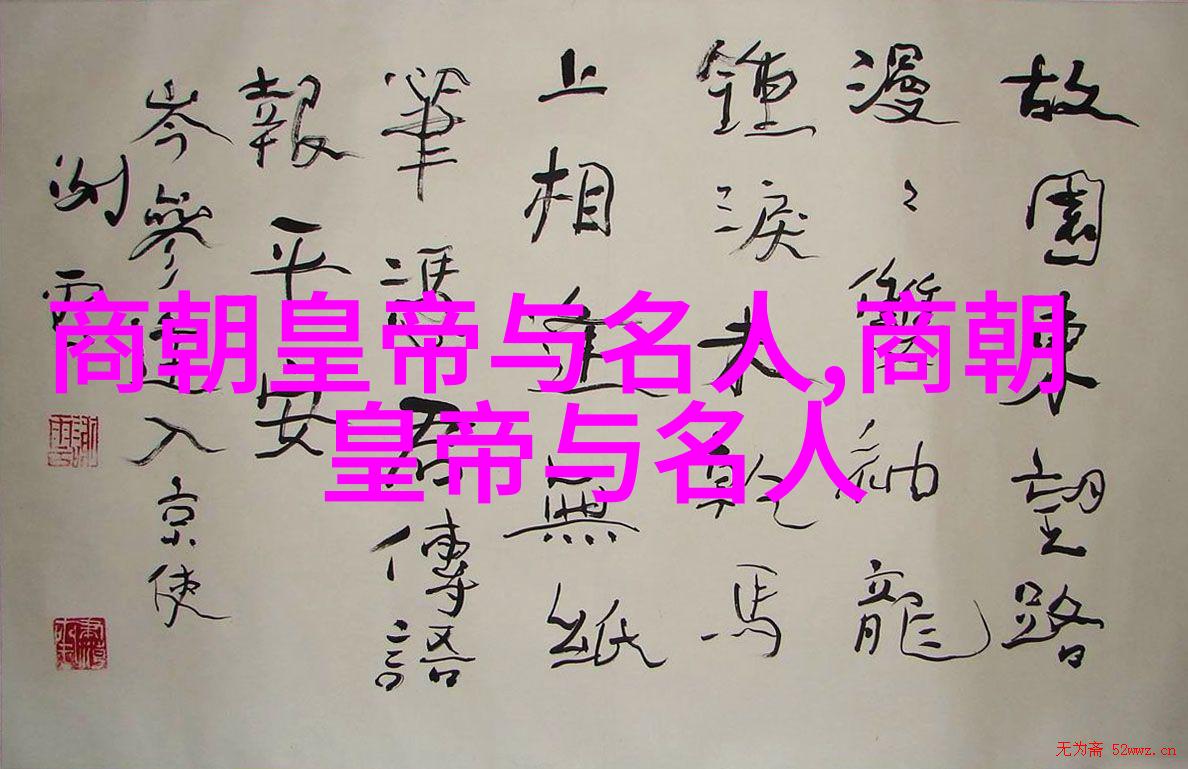 商朝皇帝与名人,商朝
皇帝与名人
故園東望路
漫〻雙袖龍
鍾淚未乾馬
上相逢無紙
筆憑君傳語
報平安
岑參逢入京使
无为斋 52wwz.cn